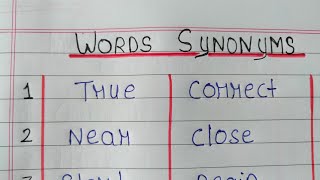 WORDS SYNONYMS
1 True Correct
2 Near Close